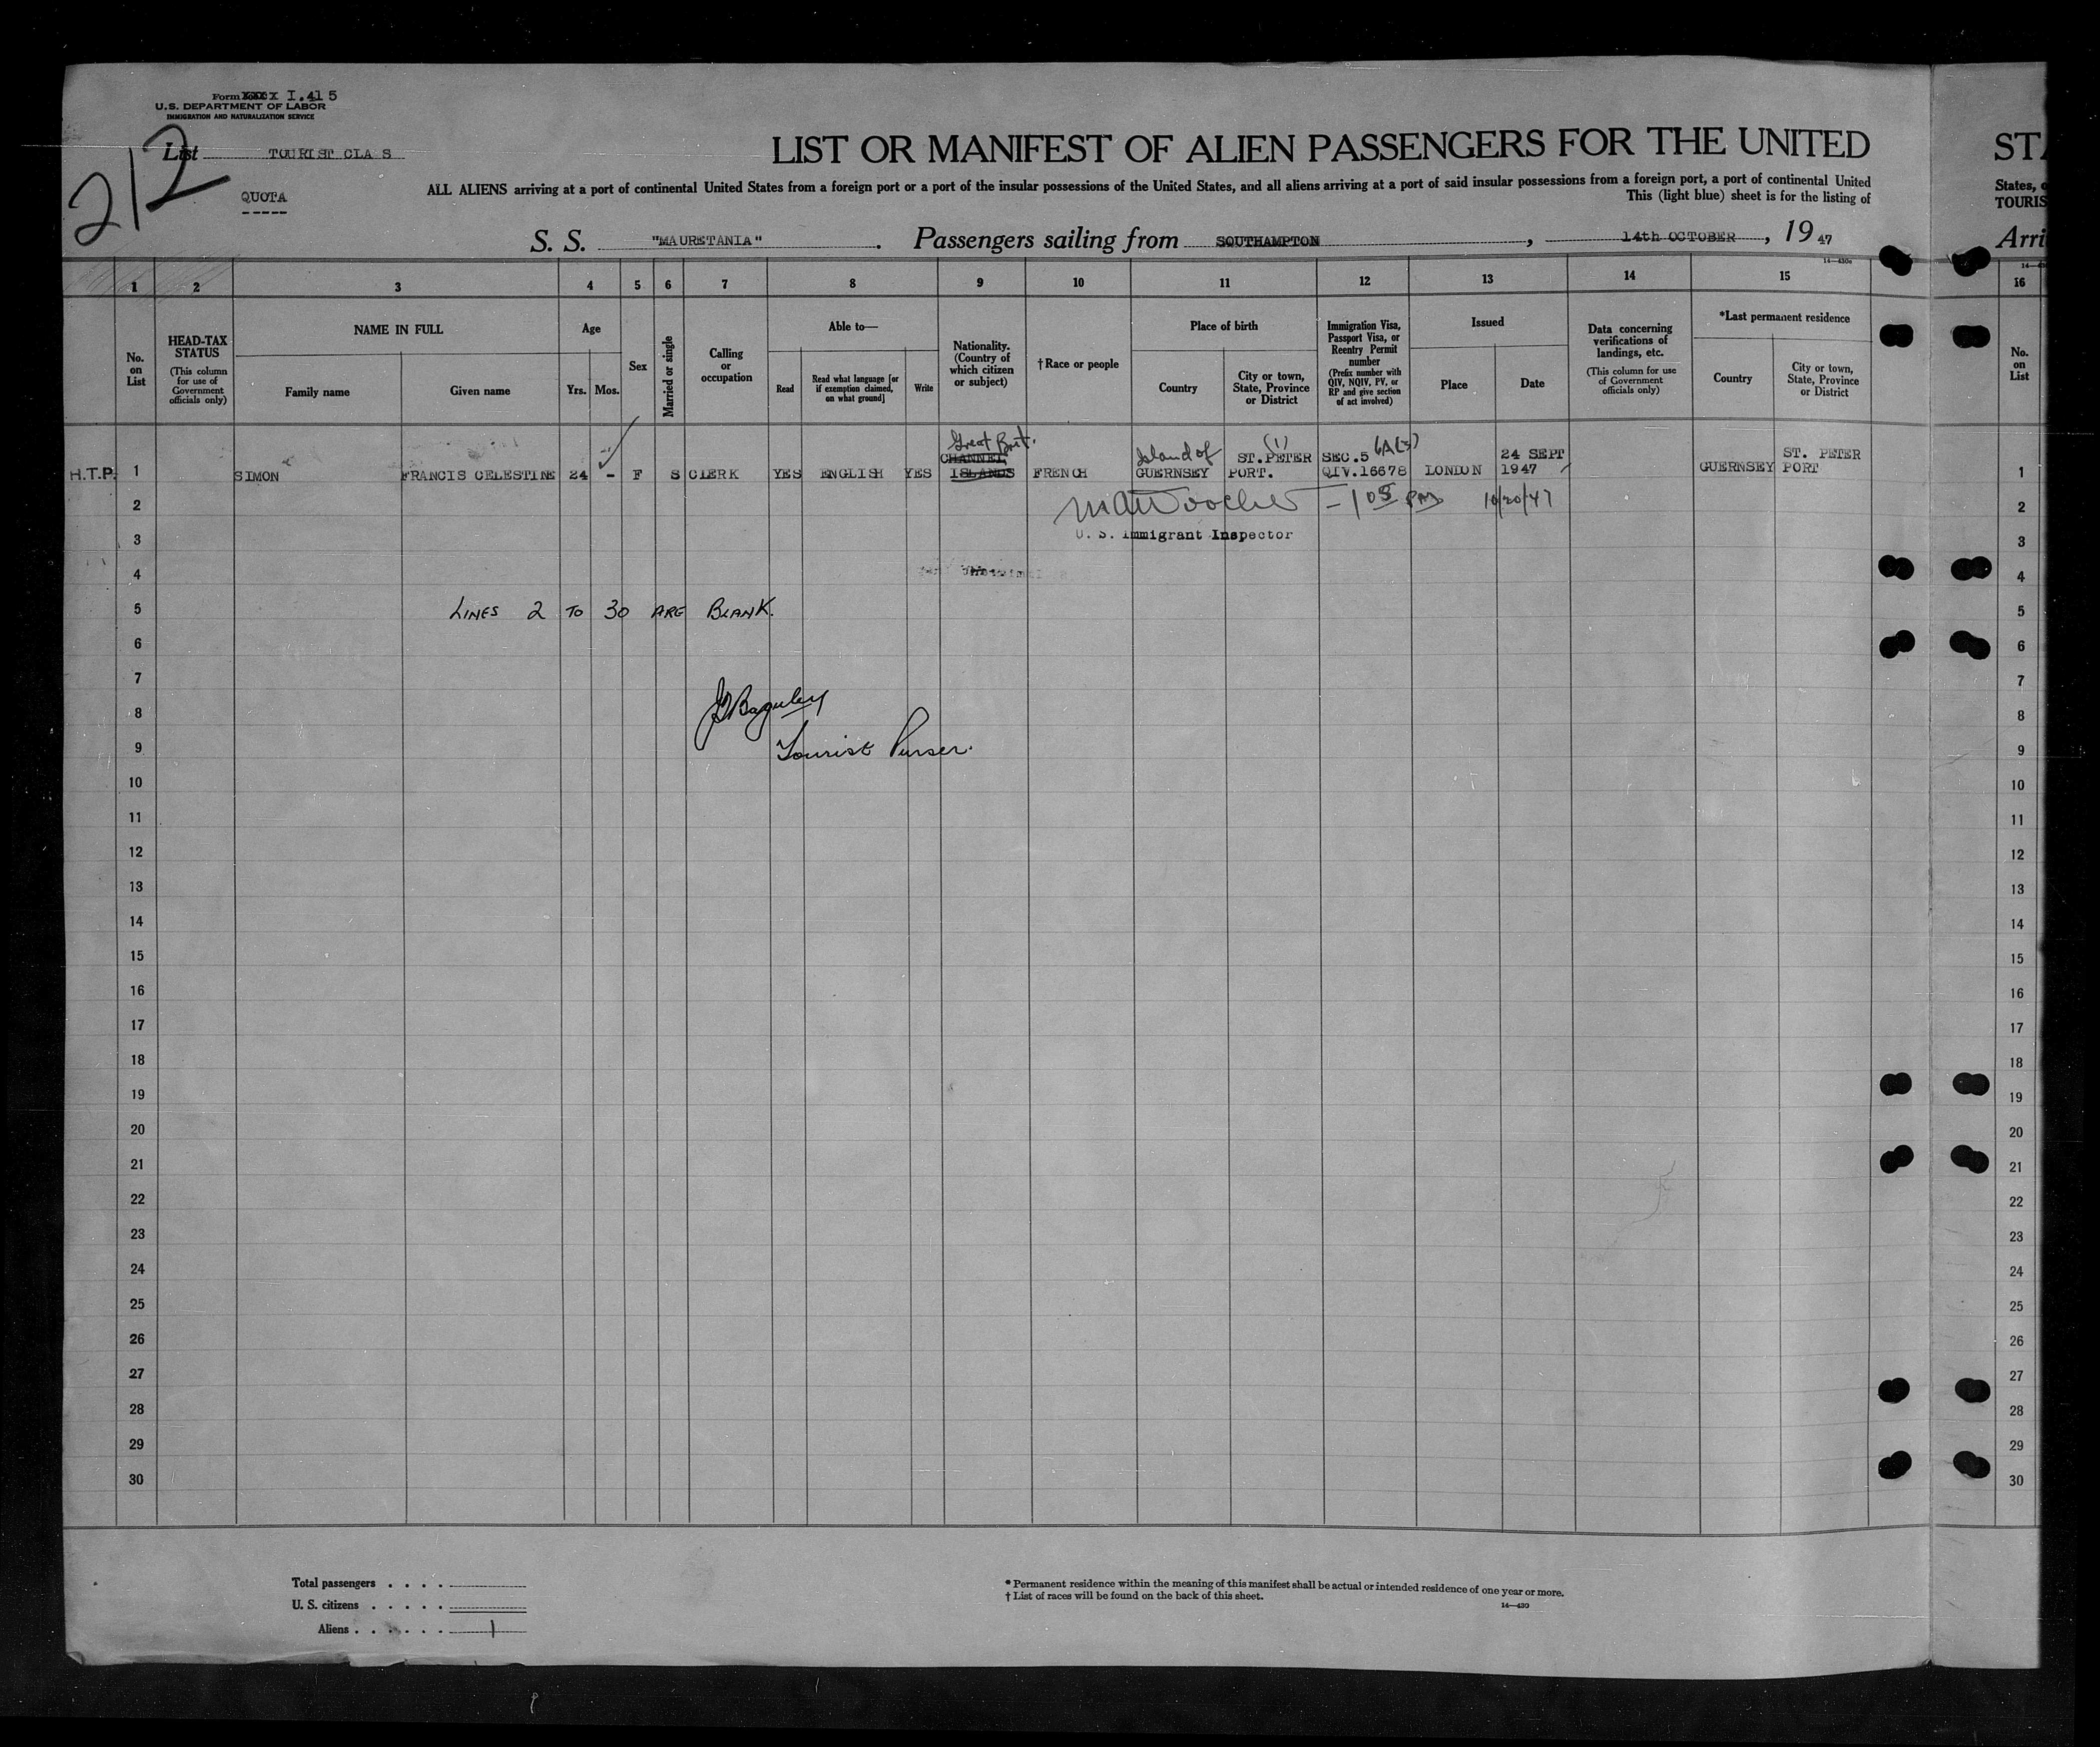 Form XXXX I.415
U.S. DEPARTMENT OF LABOR
IMMIGRATION AND NATURALIZATION SERVICE
212
List TOURIST CLA S
QUOTA
LIST OR MANIFEST OF ALIEN PASSENGERS FOR THE UNITED
ALL ALIENS arriving at a port of continental United States from a foreign port or a port of the insular possessions of the United States, and all aliens arriving at a port of said insular possessions from a foreign port, a port of continental United
This (light blue) sheet is for the listing of
S. S. "MAURETANIA". Passengers sailing from SOUTHAMPTON, 14th OCTOBER, 19 47
STA
States, o
TOURIS
Arri
14—430a
1 2 3 4 5 6 7 8 9 10 11 12 13 14 15 16
No. on List
HEAD-TAX STATUS (This column for use of Government officials only)
NAME IN FULL
Family name
Given name
Age
Yrs. Mos.
Sex
Married or single
Calling or occupation
Able to—
Read
Read what language [or if exemption claimed, on what ground]
Write
Nationality. (Country of which citizen or subject)
†Race or people
Place of birth
Country
City or town, State, Province or District
Immigration Visa, Passport Visa, or Reentry Permit number (Prefix number with QIV, NQIV, PV, or RP and give section of act involved)
Issued
Place
Date
Data concerning verifications of landings, etc. (This column for use of Government officials only)
*Last permanent residence
Country
City or town, State, Province or District
No. on List
Great Brit.
CHANNEL Island of (1) ST.PETER SEC.5 6A(3) 24 SEPT ST. PETER
H.T.P. 1 SIMON FRANCIS CELESTINE 24 - F S CLERK YES ENGLISH YES ISLANDS FRENCH GUERNSEY PORT. QIV.16678 LONDON 1947 GUERNSEY PORT 1
2 - 1 05 PM 10/20/47 2
3 U. S. Immigrant Inspector 3
4 4
5 LINES 2 TO 30 ARE BLANK. 5
6 6
7 7
8 JDBaguley 8
9 Tourist Purser. 9
10 10
11 11
12 12
13 13
14 14
15 15
16 16
17 17
18 18
19 19
20 20
21 21
22 22
23 23
24 24
25 25
26 26
27 27
28 28
29 29
30 30
Total passengers . . . .
U. S. citizens . . . . .
Aliens . . . . . . 1
* Permanent residence within the meaning of this manifest shall be actual or intended residence of one year or more.
† List of races will be found on the back of this sheet.
14—430